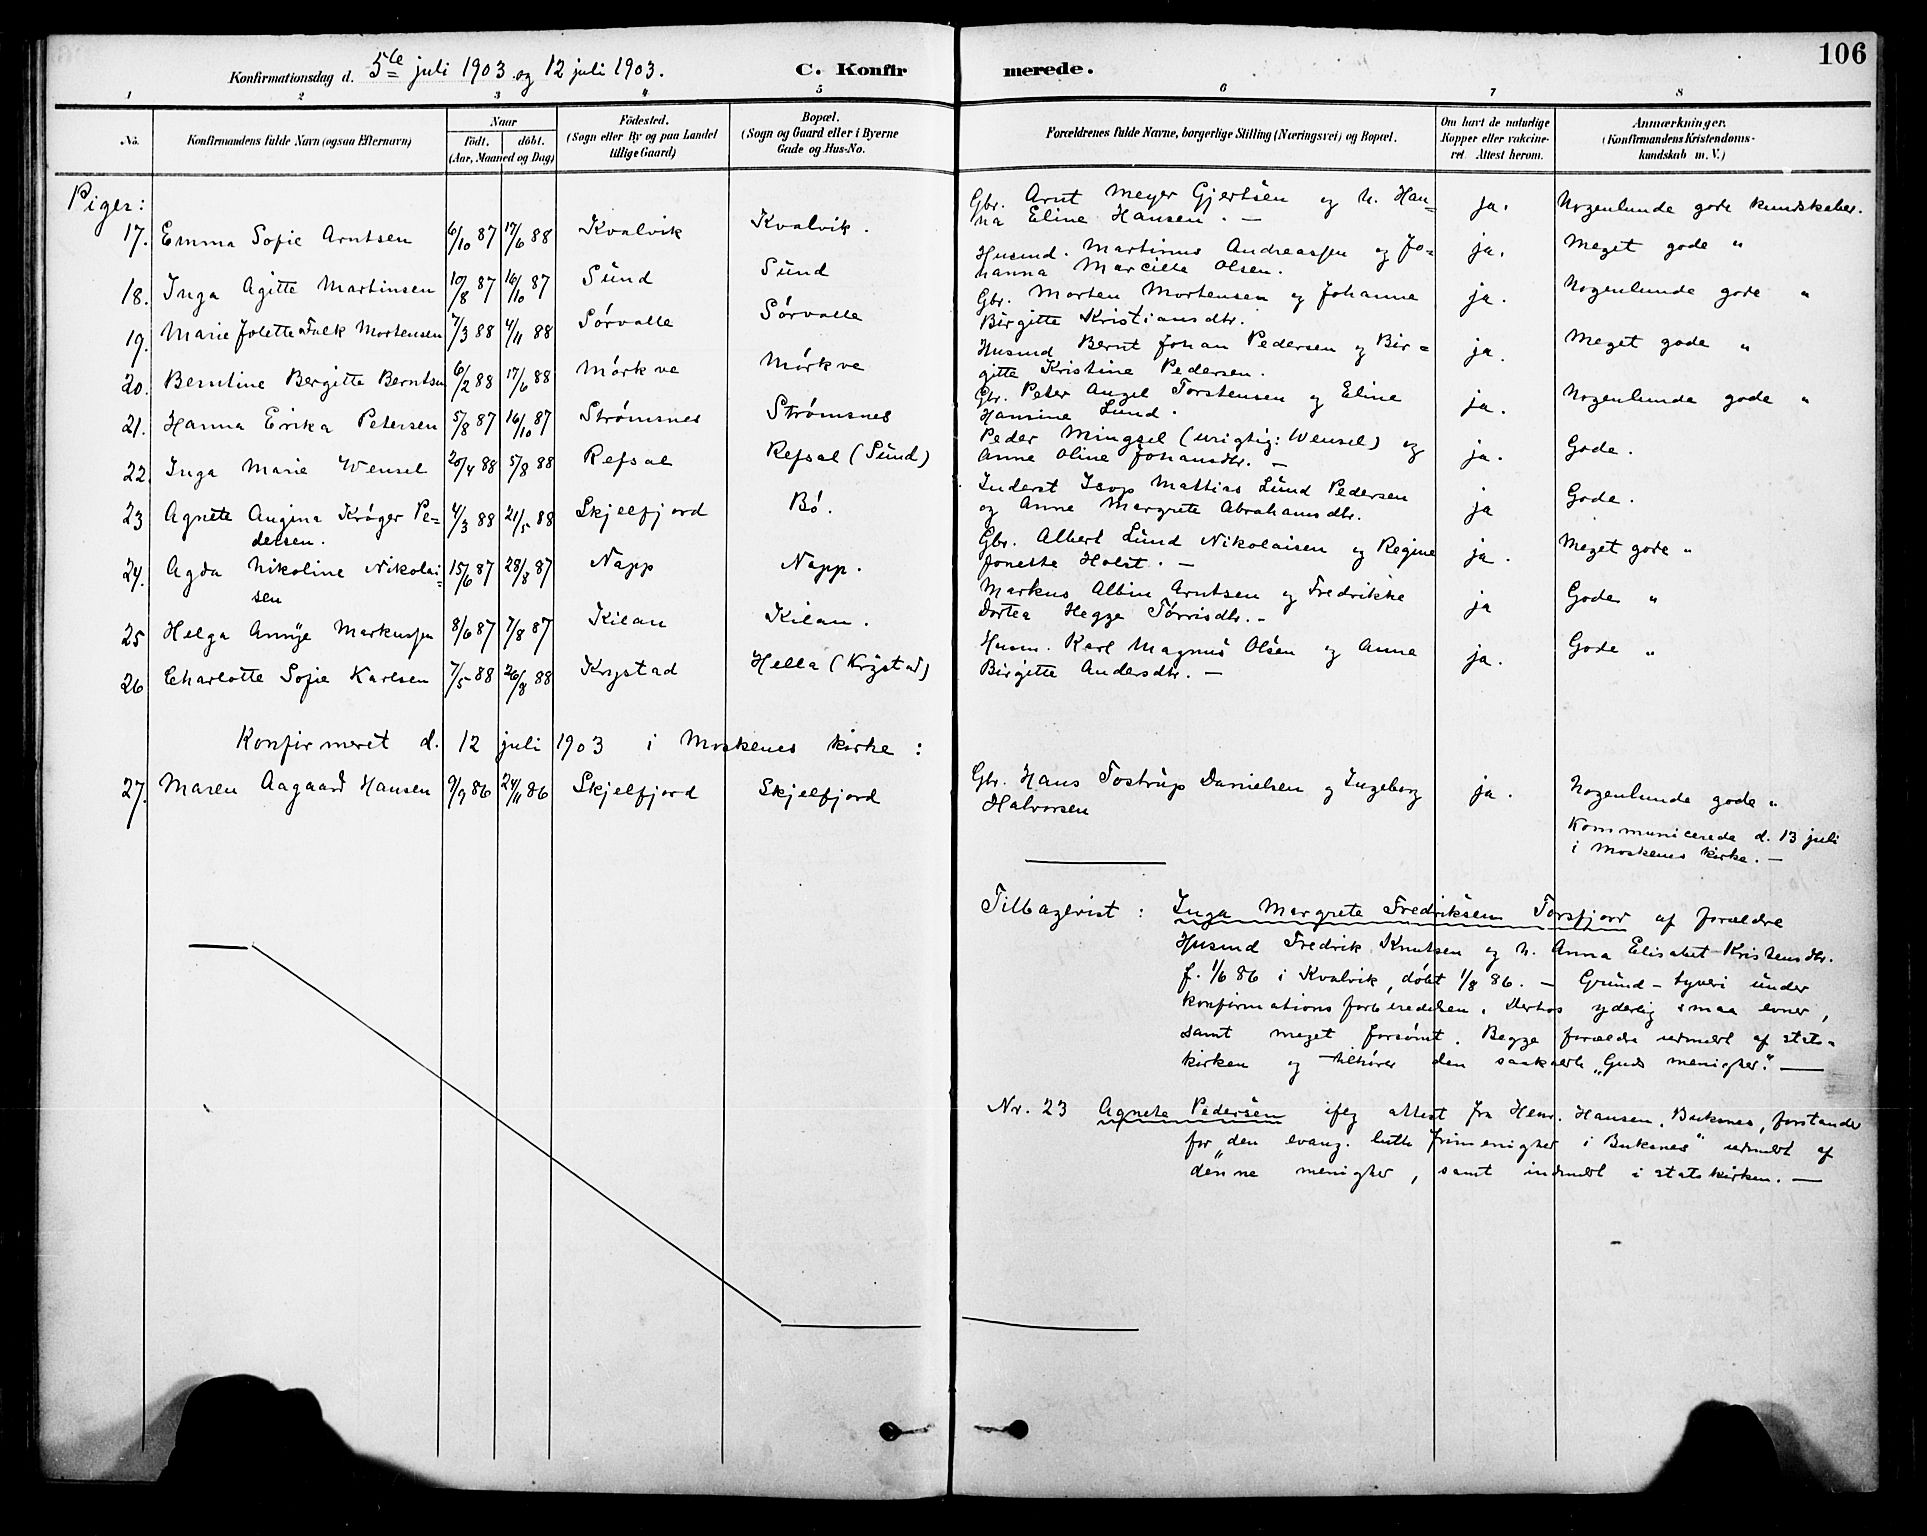 Konfirmationsdag d. 5te juli 1903 og 12 juli 1903. C. Konfirmerede. 106
1 2 3 4 5 6 7 8
No. Konfirmandens fulde Navn (ogsaa Efternavn) Naar födt. döbt. (Aar, Maaned og Dag) Födested. (Sogn eller By og paa Landet tillige Gaard) Bopæl. (Sogn og Gaard eller i Byerne Gade og Hus-No. Forældrenes fulde Navne, borgerlige Stilling (Næringsvei) og Bopæl. Om havt de naturlige Kopper eller vakcineret. Attest herom. Anmærkninger. (Konfirmandens Kristendomskundskab m. V.)
Piger:
17. Emma Sofie Arntsen 6/10 87 17/6 88 Kvalvik Kvalvik. Gbr. Arnt Meyer Gjertsen og h. Han=
na Eline Hansen. — ja. Nogenlunde gode kundskaber.
18. Inga Agitte Martinsen 10/8 87 16/10 87 Sund Sund Husmd. Martinus Andreassen og Jo=
hanna Marcille Olsen. ja. Meget gode "
19. Marie Jolette Falk Mortensen 7/3 88 4/11 88 Sørvalle Sørvalle Gbr. Morten Mortensen og Johanne
Birgitte Kristiansdtr. ja. Nogenlunde gode "
20. Berntine Bergitte Berntsen 6/2 88 17/6 88 Mørkve Mørkve Husmd Bernt Johan Pedersen og Bir=
gitte Kristine Pedersen. ja. Meget gode "
21. Hanna Erika Petersen 5/8 87 16/10 87 Strømsnes Strømsnes Gbr. Peter Angel Torstensen og Eline
Hansine Lund. ja. Nogenlunde gode "
22. Inga Marie Wensel 20/4 88 5/8 88 Refsal Refsal (Sund) Peder Mingsel (urigtig: Wensel) og
Anne Oline Johansdtr. — ja. Gode.
23 Agnete Angina Krøger Pe=
dersen. 4/3 88 21/5 88 Skjelfjord Bø. Inderst Isop Mattias Lund Pedersen
og Anne Margrete Abrahamsdtr. ja Gode.
24. Agda Nikoline Nikolai=
sen 15/6 87 28/8 87 Napp Napp. Gbr. Albert Lund Nikolaisen og Regine
Jonette Holst. — ja. Meget gode "
25 Helga Markussen 8/6 87 7/8 87 Kilan Kilan. Markus Albin Arntsen og Fredrikke
Dortea Hegge Tørrisdtr. — ja Gode "
26 Charlotte Sofie Karlsen 7/5 88 26/8 88 Krystad Hella (Krystad) Husm. Karl Magnus Olsen og Anne
Birgitte Andersdtr. — ja. Gode "
Konfirmeret d. 12 juli 1903 i Moskenes kirke:
27. Maren Aagaard Hansen 9/9 86 24/11 86 Skjelfjord Skjelfjord Gbr. Hans Tostrup Danielsen og Ingeborg
Halvorsen ja. Nogenlunde gode "
Kommunicerede d. 13 juli
i Moskenes kirke. —
Tilbagevist: Inga Margrete Fredriksen Torsfjord af forældre
Husmd Fredrik Knutsen og h. Anna Elisabet Kristensdtr.
f. 1/6 86 i Kvalvik, døbt 1/8 86. — Grund - tyveri under
konfirmationsforberedelsen. Derhos yderlig smaa evner,
samt meget forsømt. Begge forældre udmeldt af stats=
kirken og tilhører den saakaldte "Guds menighed". —
Nr. 23 Agnete Pedersen ifølg attest fra Henr. Hansen, Buksnes, forstander
for "den evang. luth. frimenighed i Buksnes" udmeldt af
denne menighed, samt indmeldt i statskirken. —